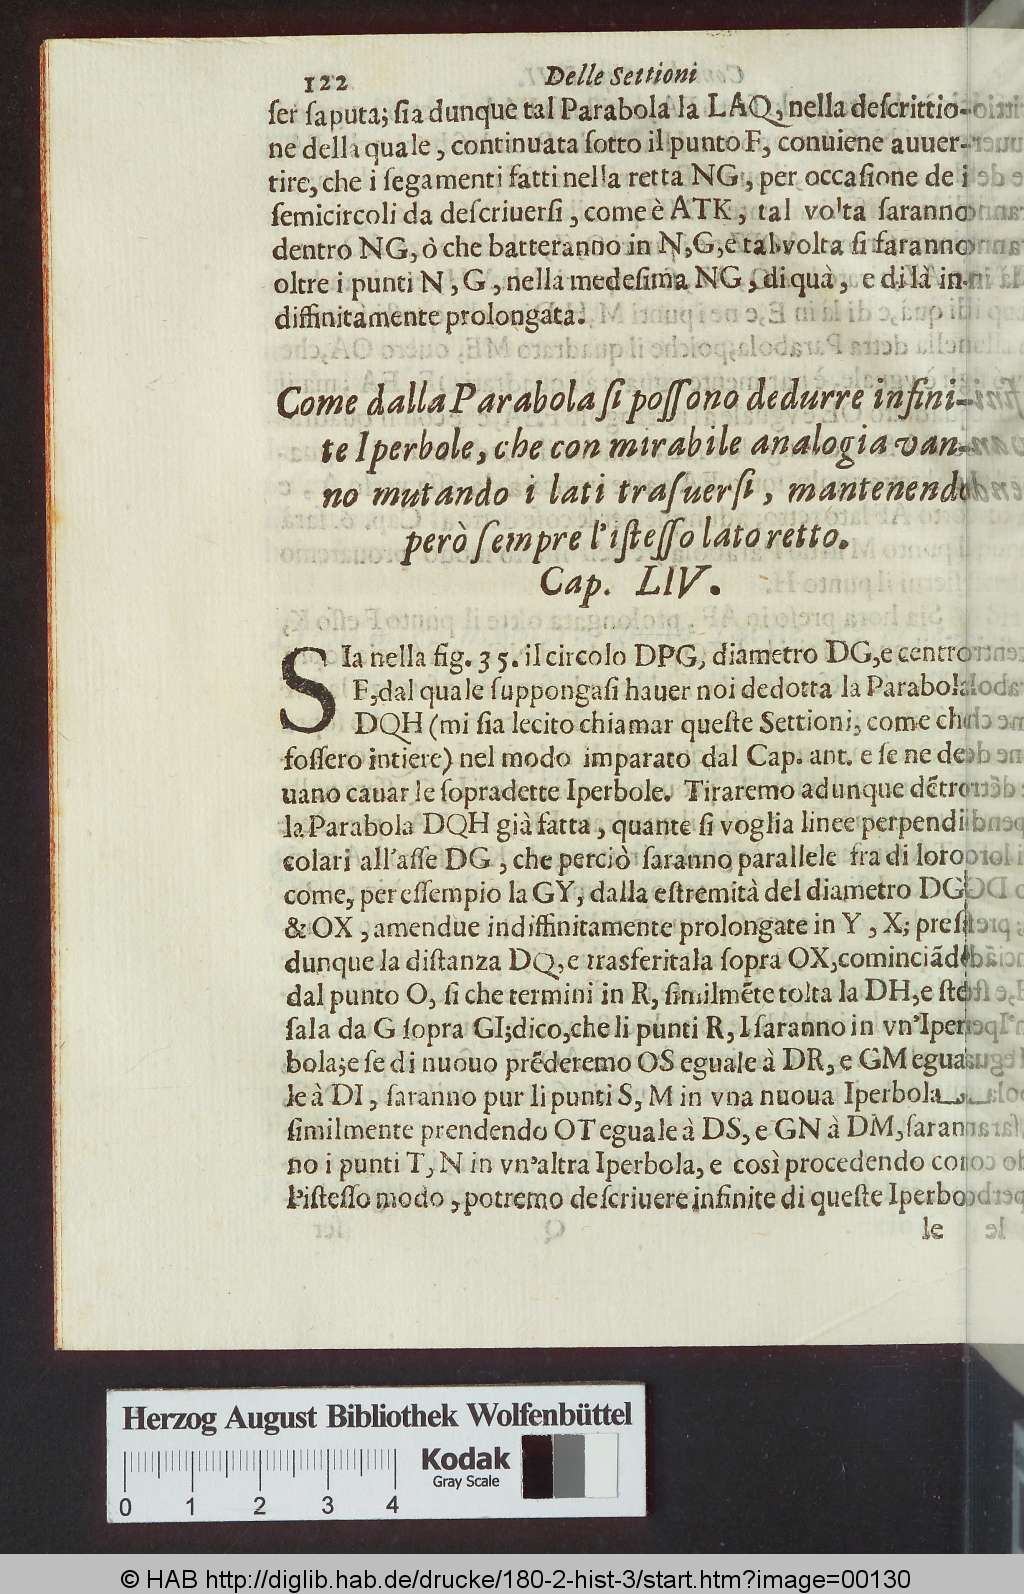 122 Delle Settioni
ſer ſaputa; ſia dunque tal Parabola la LAQ, nella deſcrittio-
ne della quale, continuata ſotto il punto F, conuiene auuer-
tire, che i ſegamenti fatti nella retta NG, per occaſione de i
ſemicircoli da deſcriuerſi, come è ATK, tal volta ſaranno
dentro NG, ò che batteranno in N, G, e tal volta ſi faranno
oltre i punti N, G, nella medeſima NG, di quà, e di là in-
diffinitamente prolongata.
Come dalla Parabola ſi poſſono dedurre infini-
te Iperbole, che con mirabile analogia van-
no mutando i lati traſuerſi, mantenendo
però ſempre l'iſteſſo lato retto.
Cap. LIV.
SIa nella fig. 35. il circolo DPG, diametro DG, e centro
F, dal quale ſuppongaſi hauer noi dedotta la Parabola
DQH (mi ſia lecito chiamar queſte Settioni, come che
foſſero intiere) nel modo imparato dal Cap. ant. e ſe ne de
uano cauar le ſopradette Iperbole. Tiraremo adunque dẽtro
la Parabola DQH già fatta, quante ſi voglia linee perpendi
colari all'aſſe DG, che perciò ſaranno parallele fra di loro
come, per eſſempio la GY, dalla eſtremità del diametro DG
& OX, amendue indiffinitamente prolongate in Y, X; preſa
dunque la diſtanza DQ, e trasferitala ſopra OX, cominciãdo
dal punto O, ſi che termini in R, ſimilmẽte tolta la DH, e ſte
ſala da G ſopra GI; dico, che li punti R, I ſaranno in vn'Iper
bola; e ſe di nuouo prẽderemo OS eguale à DR, e GM egua
le à DI, ſaranno pur li punti S, M in vna nuoua Iperbola,
ſimilmente prendendo OT eguale à DS, e GN à DM, ſaran
no i punti T, N in vn'altra Iperbola, e così procedendo co
l'iſteſſo modo, potremo deſcriuere infinite di queſte Iperbo
le
Herzog August Bibliothek Wolfenbüttel
Kodak
Gray Scale
0 1 2 3 4
© HAB http://diglib.hab.de/drucke/180-2-hist-3/start.htm?image=00130